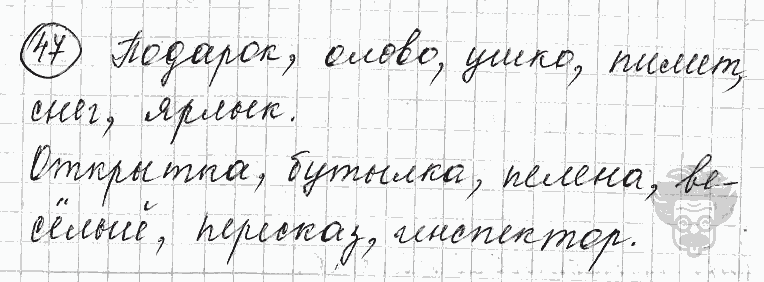 47 Подарок, олово, ушко, пилит,
снег, ярлык.
Открытка, бутылка, пелена, ве-
сёлый, пересказ, инспектор.